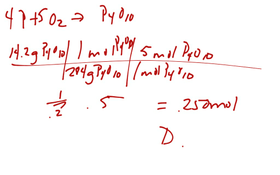 4P+5O2 → P4O10
14.2g P4O10 | 1 mol P4O10 | 5 mol P4O10
284g P4O10 | 1 mol P4O10
1/2 . 5 = .250mol
D.